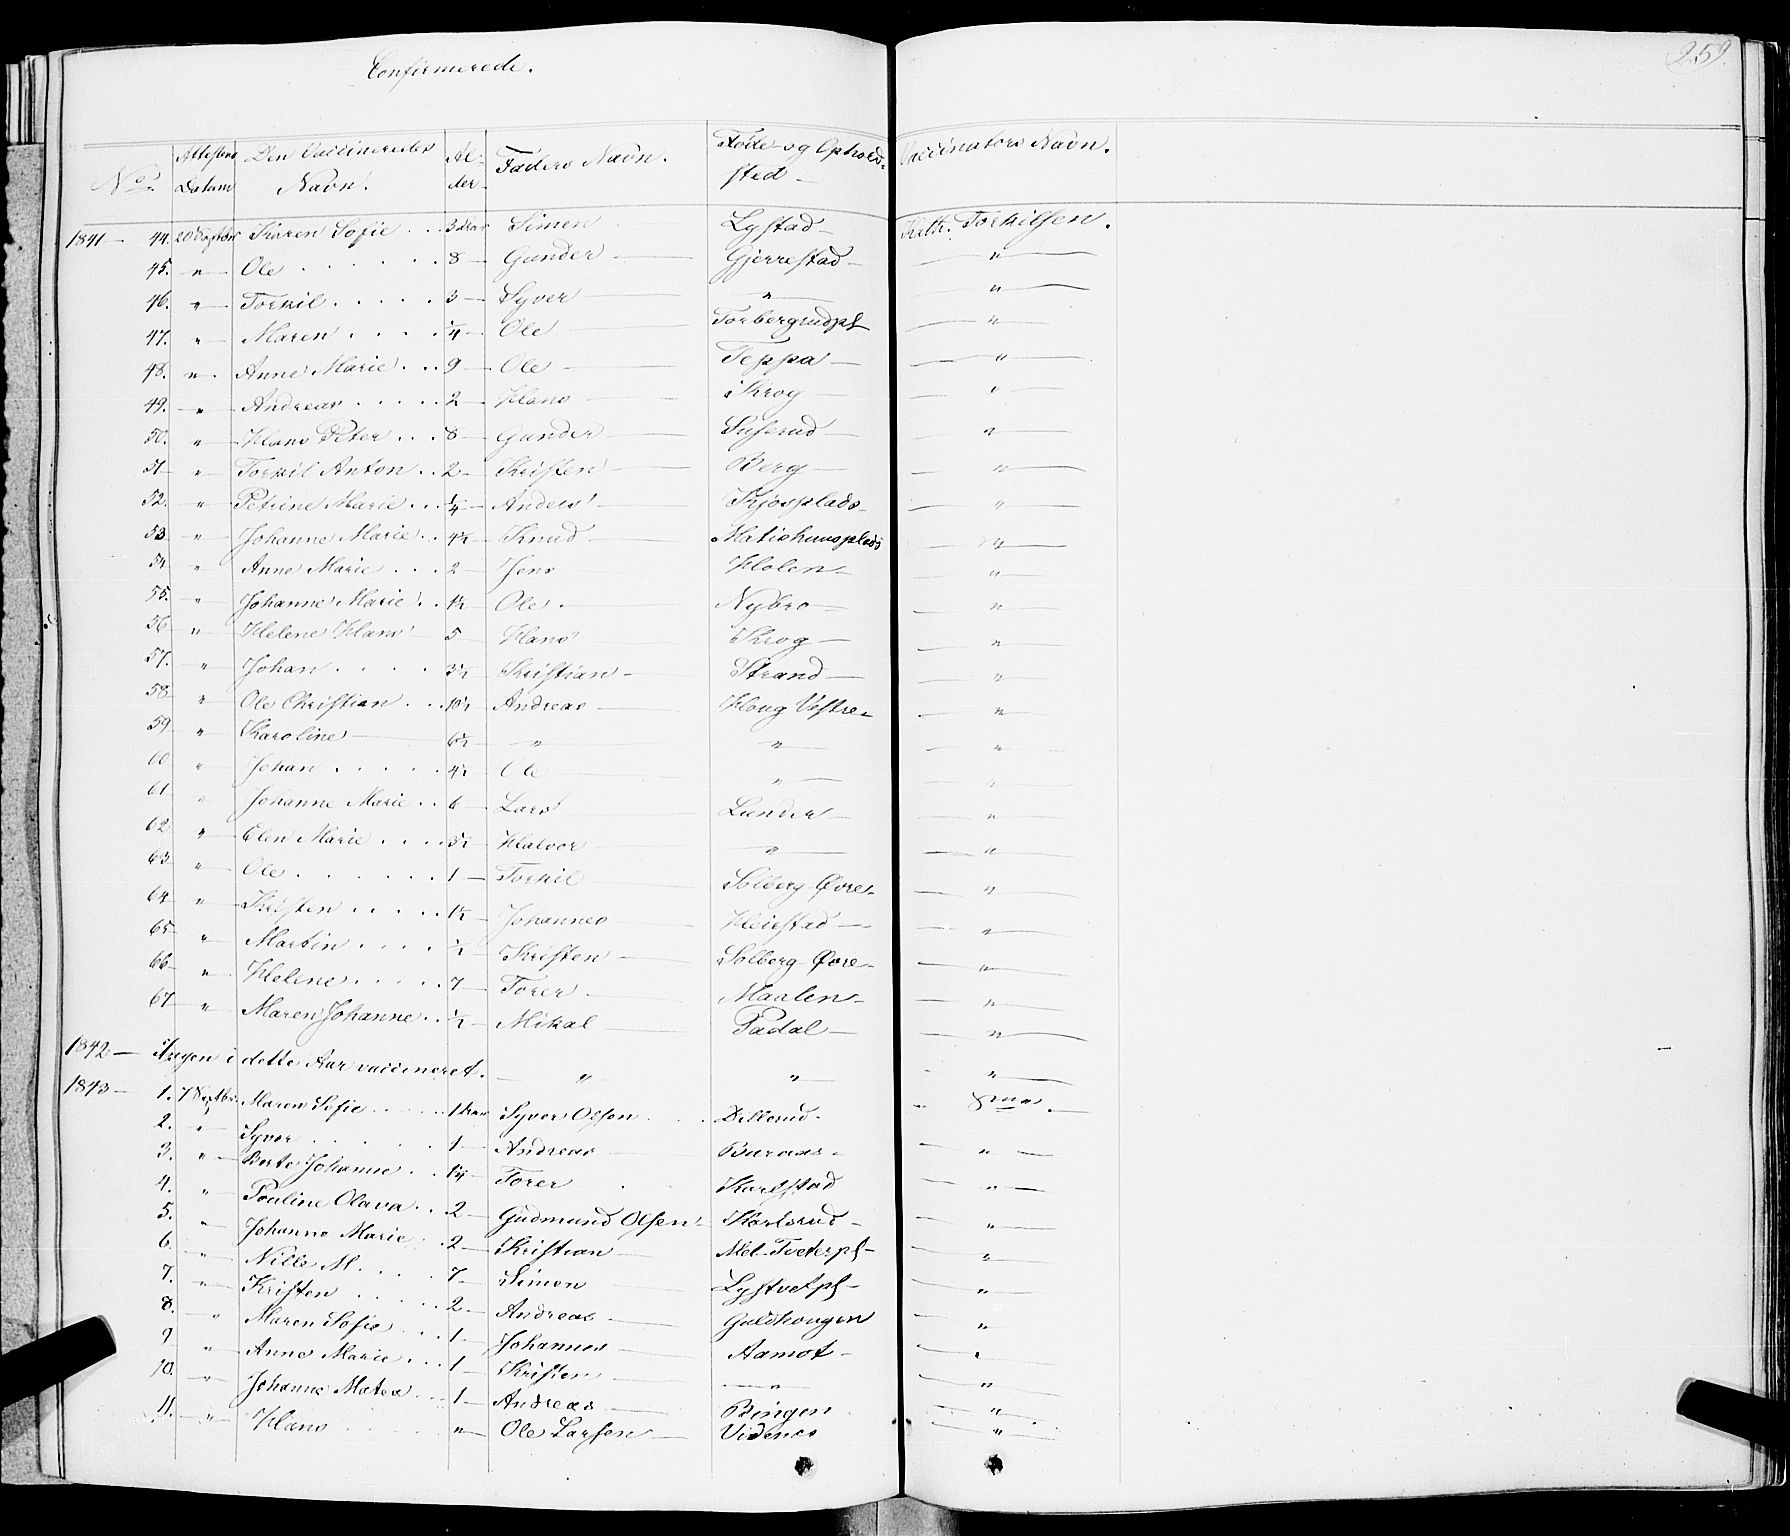 Confirmerede.
259.
No. Attestens Datum Den Vaccineredes Navn. Alder Faders Navn. Føde og Opholdssted Vaccinators Navn.
1841 — 44. 20 Septbr Karen Sofie . . . 3 Aar Simen Lystad — Torkilsen.
45. " Ole . . . . . . 8 — Gunder — Gjerrestad — "
46. " Torkil . . . . . 3 — Syver — " — "
47. " Maren . . . . ¼ — Ole — Torbergrudpl — "
48. " Anne Marie . . . 9 — Ole — Teppa — "
49. " Andreas . . . . . 2 — Hans — Krog — "
50. " Hans Peter . . . 8 — Gunder — Suserud — "
51 " Torkil Anton . . 2 — Kristen — Berg — "
52. " Petrine Marie . . . ¼ — Anders — Kjosplads — "
53 " Johanne Marie . . 4½ — Knud — Matishuusplads — "
54 " Anne Marie . . . 2 — Jens Holen — "
55. " Johanne Marie . . 1½ — Ole . — Nybro — "
56 " Helene Hans 5 — Hans — Krog — "
57. " Johan . . . . . 3½ — Kristian — Strand — "
58 " Ole Christian . . 10½ — Andreas — Houg Vestre — "
59 " Karoline — 6½ — " — " — "
60 " Johan . . . . . 4½ — Ole — " — "
61 " Johanne Marie . . 6 — Lars — Lunder — "
62 " Elen Marie . . . . 3½ — Halvor — " — "
63 " Ole . . . . . . . 1 — Torkil — Solberg Øvre — "
64 " Kristen . . . . . 1½ — Johannes — Heiestad — "
65 " Martin . . . . . ½ — Kristen — Solberg Øvre — "
66 " Helene . . . . . 7 — Torer — Maalen — "
67 " Maren Johanne . . ½ — Mikal — Padal — "
1842 — Ingen i dette Aar vaccineret. — " — " — "
1843 — 1. 7 Septbr. Maren Sofie . . . . . 1 Aar Syver Olsen . . . Dillerud — —
2. " Syver . . . . . . 1 — Andreas — Buraas — "
3. " Berte Johanne . . 1¼ — Torer . Karlstad — "
4. " Pouline Olava . . . 2 — Gudmund Olsen — Karlsrud — "
5. " Johanne Marie . . 2 — Kristian — Mel. Tveterpl — "
6. " Nille M. . . . . 7 — Simen — Lystvetpl — "
7. " Kristen . . . . . 2 — Andreas — Guldhougen "
8. " Maren Sofie . . . 1 — Johannes — Aamot — "
9 " Anne Marie . . . 1 — Kristen — " — "
10. " Johanne Matea . . . 1 — Andreas — Bingen "
11. " Hans . . . . . " — Ole Larsen — Videnes "